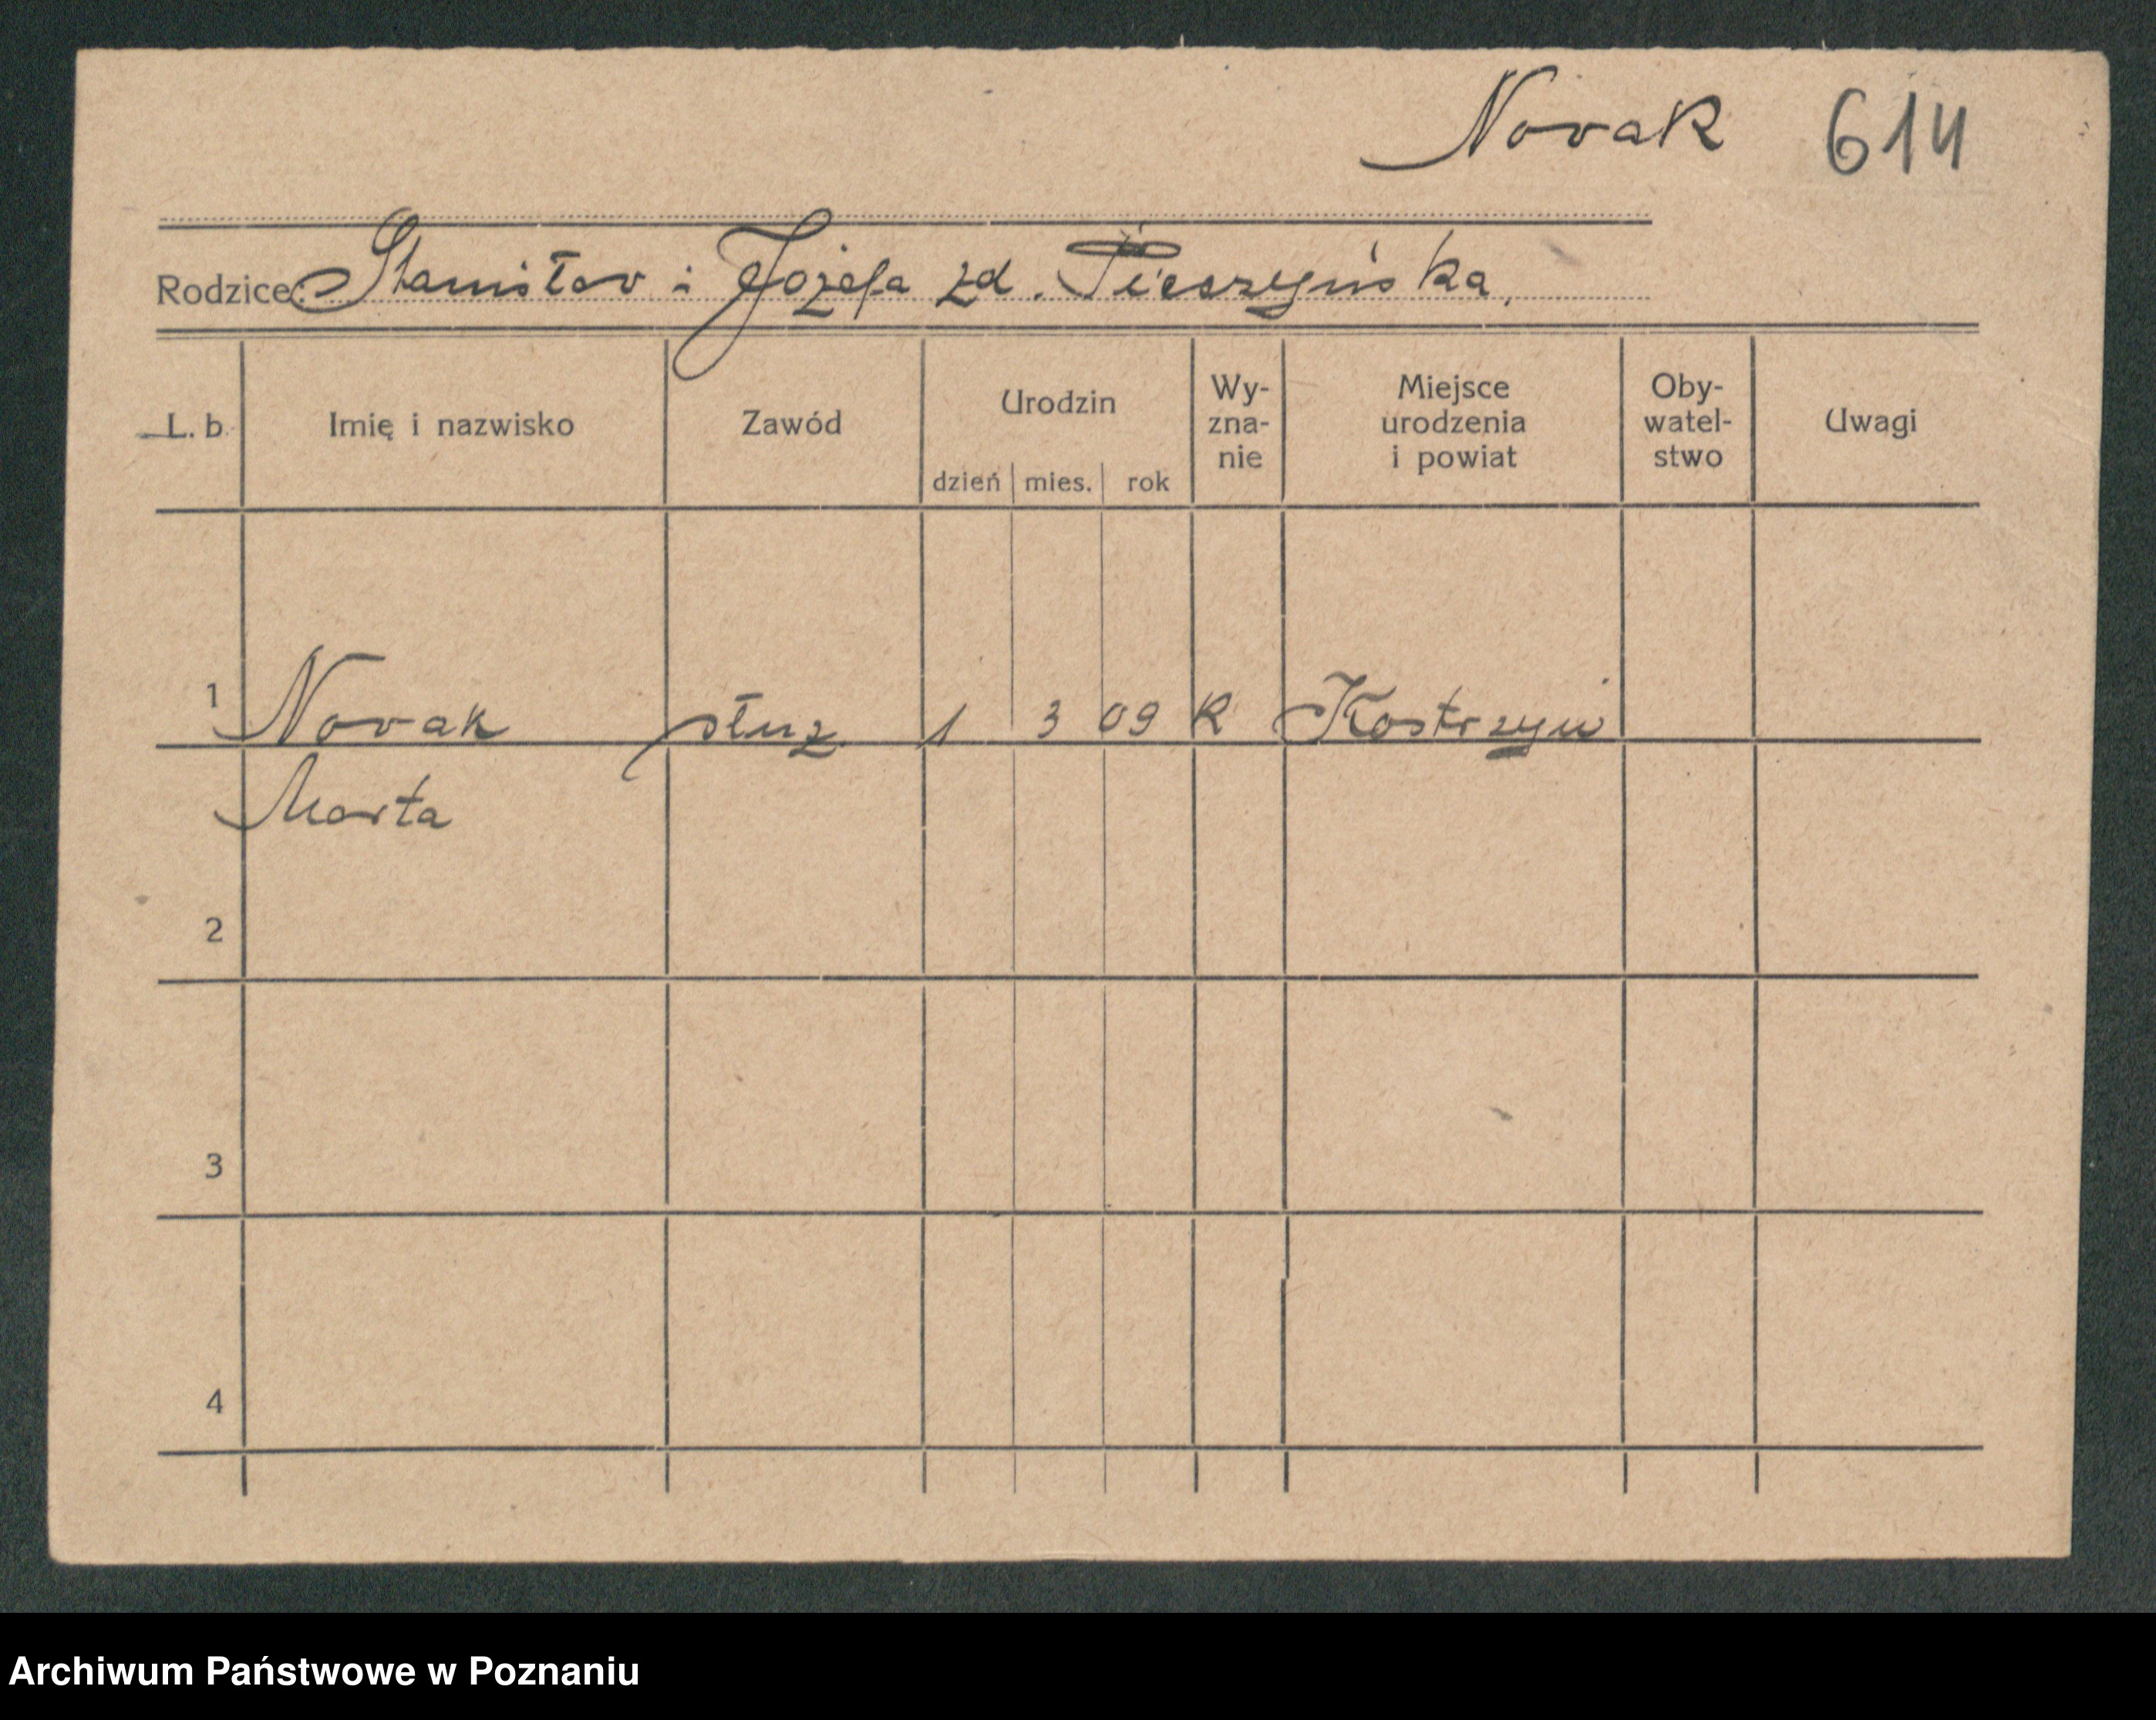 Novak 614
Rodzice: Stanisłav i Józefa zd. Pieszyńska,
L. b. Imię i nazwisko Zawód Urodzin dzień mies. rok Wy-zna-nie Miejsce urodzenia i powiat Oby-watel-stwo Uwagi
1 Novak służ. 1 3 09 K Kostrzyń
Marta
2
3
4
Archiwum Państwowe w Poznaniu